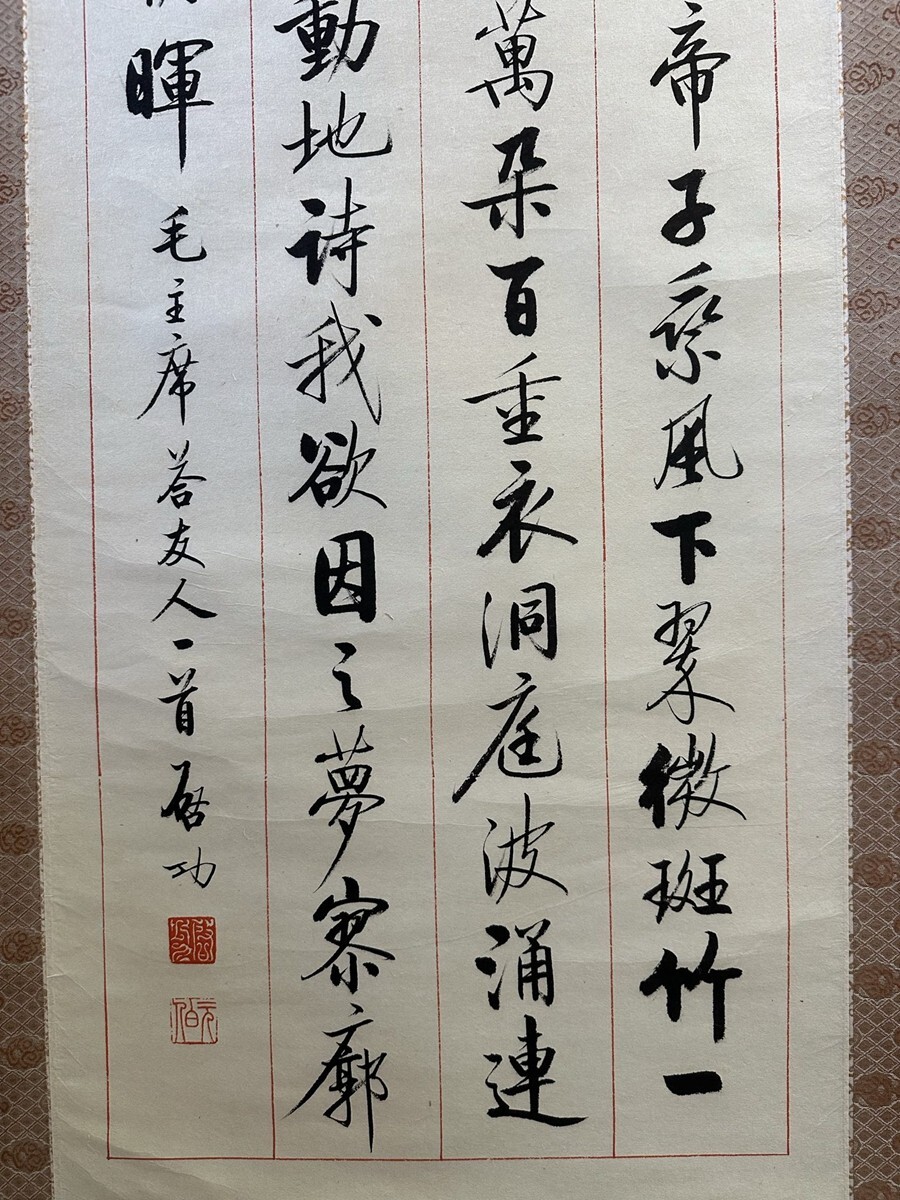 帝子乘風下翠微斑竹一
萬朵百重衣洞庭波涌連
動地詩我欲因之夢寥廓
暉 毛主席荅友人一首 启功
啓功
元白